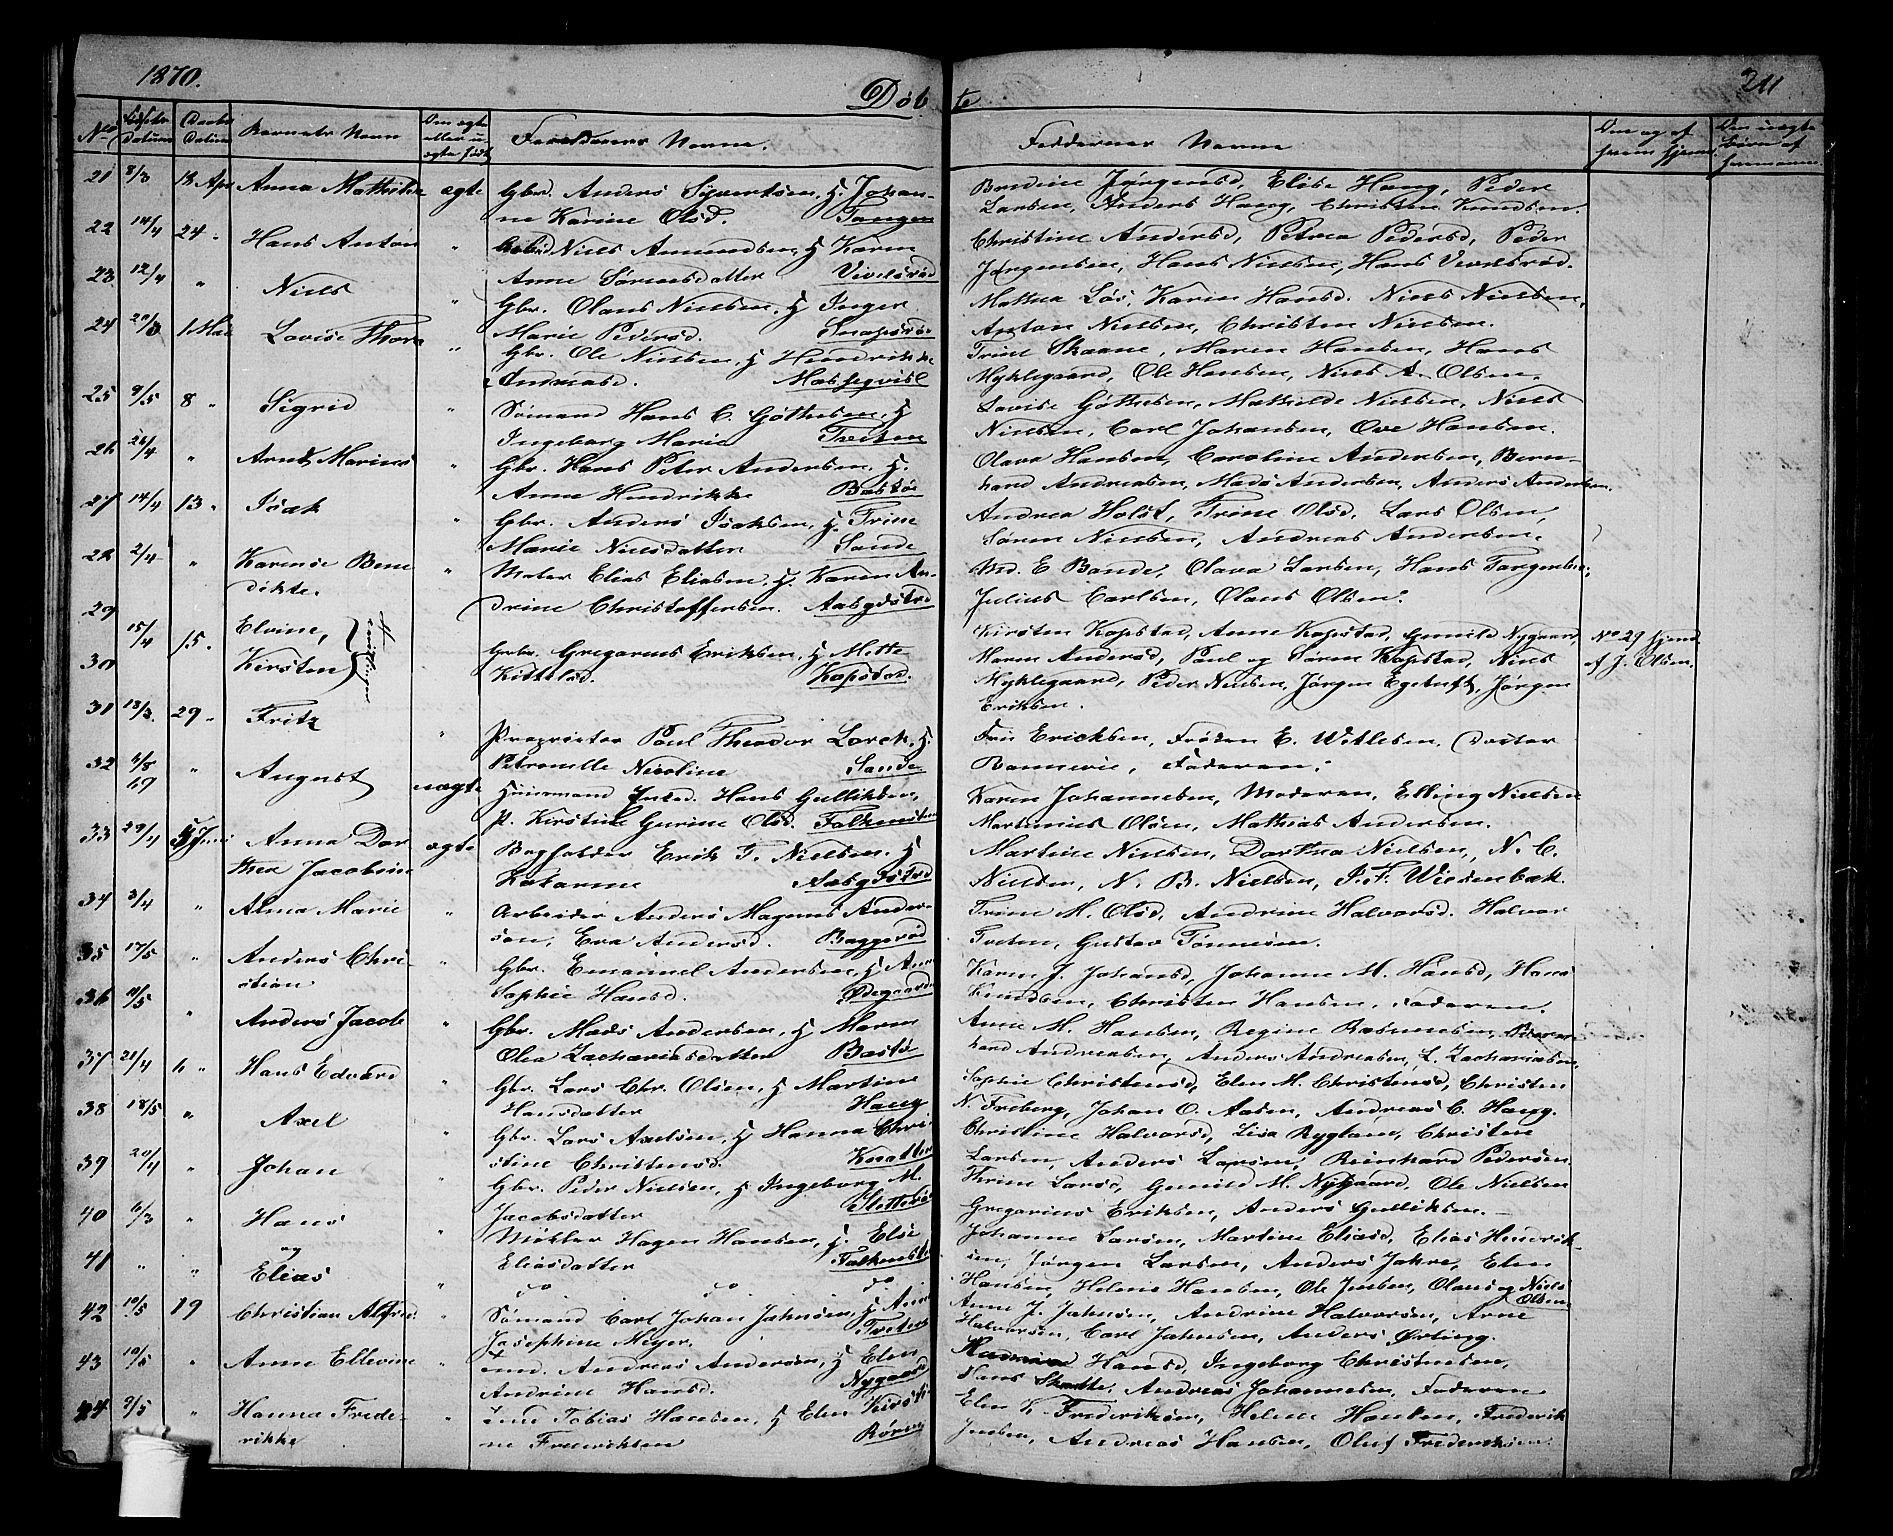 1870.
Døb
te
211
No
Fødsels Datum
Daabs Datum
Barnets Navn
Om ægte eller uægte født
Forældrenes Navne.
Faddernes Navne
Om og af hvem hjemd.
21 8/3 18 Apr Anna Mathilde ægte Gbr. Anders Syvertsen, H Johan-
ne Karine Olsd. Tangen
Berdine Jørgensd, Elise Haug, Peder
Larsen, Anders Haug, Christen Knudsen.
22 14/4 24 " Hans Anton " Niels Amundsen, H Karen
Anne Sørensdatter Vivelsrød
Christine Andersd, Petrea Pedersd, Peder
Jørgensen, Hans Nielsen, Hans Vivelsrød.
23 12/4 " Niels " Gbr. Olaus Nielsen, H Inger
Marie Pedersd. Snapsrød
Mathea Løs, Karen Hansd. Niels Nielsen,
Anton Nielsen, Christen Nielsen.
24 1 Mai Lovise Thora " Gbr. Ole Nielsen, H Hendrikke
Andreasd. Masseqvist
Trine Skaane, Maren Hansen, Hans
Myklegaard, Ole Hansen, Niels A. Olsen.
25 9/5 8 " Sigrid " Sømand Hans C. Gøthesen, H
Ingeborg Marie Tveten
Lovise Gøthesen, Mathilde Nielsen, Niels
Nielsen, Carl Johansen, Ove Hansen.
26 26/4 " Arnt Marius " Gbr. Hans Peter Andersen, H.
Anne Hendrikke Bastø
Olava Hansen, Caroline Andersen, Bern-
hard Andreasen, Mads Andersen, Anders Andersen.
27 14/4 13 " Isak " Gbr. Anders Isaksen, H. Trine
Marie Nielsdatter Sande
Andrea Holst, Trine Olsd, Lars Olsen,
Søren Nielsen, Andreas Andersen.
28 2/4 " Karense Bene
dikte. " Maler Elias Eliasen, H. Karen An-
drine Christoffersen. Aasgdstrd
Md. E Bande, Olava Larsen, Hans Torgersen,
Julius Carlsen, Olaus Olsen.
29 15/4 15. Elvine,
30 Kirsten } Tvillinger
Gbr. Gregarius Eriksen, H Mette
Kittelsd. Kopstad.
Kirsten Kopstad, Anne Kopstad, Gunild Nygaard,
Maren Andersd, Paul og Søren Kopstad, Niels
Myklegaard, Peder Nielsen, Jørgen Egetuft, Jørgen
Eriksen.
No 29 hjemd.
af J. Olsen.
31 13/3. 29 " Fritz " Proprietær Paul Theodor Lorck, H.
Petronelle Nicoline Sande
Fru Ericksen, Frøken E. Wetlesen, Doctor
Bonnevie, Faderen.
32 6/8 69 " August uægte Huusmand Hans Gulliksen,
P. Kirstine Gurine Olsd. Falkensten
Karen Johannesen, Moderen, Elling Nielsen
Martinius Olsen, Mathias Andersen.
33 29/4 5 Juni Anna Dor
thea Jacobine ægte Bogholder Erik T. Nielsen, H
Katarine Aasgdstrd
Martine Nielsen, Dorthea Nielsen, N. C.
Nielsen, N. B. Nielsen, P. F. Wiesenbak.
34 3/4 " Alma Marie " Arbeider Anders Magnus Ander-
sen, Eva Andersd. Baggerød
Trine M. Olsd, Andrine Halvorsd. Halvor
Tveten, Gustav Tønnesen.
35 17/5 " Anders Chri-
stian " Gbr. Emanuel Andersen, H Anne
Sophie Hansd. Ødegaarden
Karen J. Johansd, Johanne M. Hansd, Hans
Knudsen, Christen Hansen, Faderen.
36 11/5 " Anders Jacob " Gbr. Mads Andersen, H Maren
Olea Zachariasdatter Bastø
Anne M. Hansen, Regine Rasmussen, Bern-
hard Andreasen, Anders Andreasen, L. Zachariasen.
37 21/4 6 " Hans Edvard " Gbr. Lars Chr. Olsen, H Martine
Hansdatter Haug
Sophie Christensd, Elen M. Christensd, Christen
N. Freberg, Johan O. Aasen, Andreas C. Haug.
38 18/5 " Axel " Gbr. Lars Axelsen, H Hanna Chri-
stine Christensd. Knatten
Christine Halvorsd, Lisa Ryglam, Christen
Larsen, Anders Larsen, Reinhard Pedersen.
39 20/4 " Johan " Gbr. Peder Nielsen, H Ingeborg M.
Jacobsdatter Sletterød
Thrine Larsd, Gunild M. Nygaard, Ole Nielsen
Gregarius Eriksen, Anders Gulliksen.
40 6/3 " Hans " Møller Hagen Hansen, H. Else
Eliasdatter Falkensten
Johanne Larsen, Martine Eliasd, Elias Hendrik-
sen, Jørgen Larsen, Anders Jahre, Elen
41 " " og Elias " do do do
Hansen, Helene Hansen, Ole Jensen, Olaus og Niels
Olsen
42 10/5 19 Christian Alfred " Sømand Carl Johan Johnsen, H Anne
Josephine Meyer. Tveten
Anne J. Johnsen, Andrine Halvorsen, Arne
Halvorsen, Carl Johnsen, Anders Ørtingg.
43 10/5 " Anne Ellevine " Andreas Andersen, H Elen
Andrine Hansd. Nygaard
Hansd, Ingeborg Christensen,
Hans Skatte, Andreas Johannesen, Faderen
44 9/5 " Hanna Frede-
rikke " Tobias Hansen, H Elen Kirsti-
ne Frederiksen Rørvig
Elen K. Frederiksen, Helene Hansen, Frederik
Jensen, Andreas Hansen, Oluf Frederiksen.